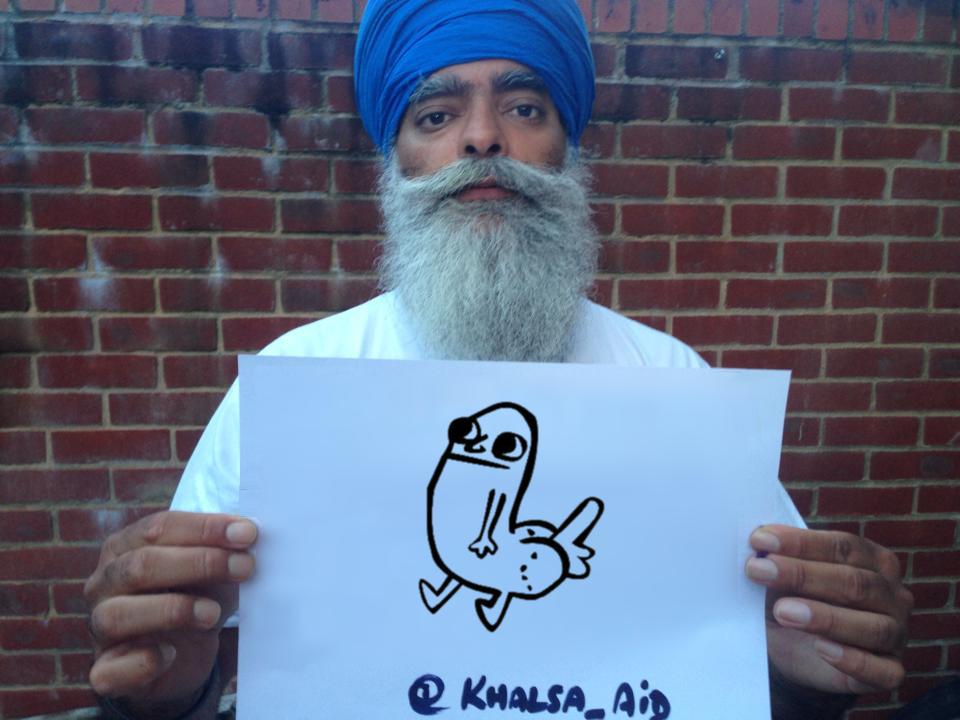 @ KHALSA_AiD